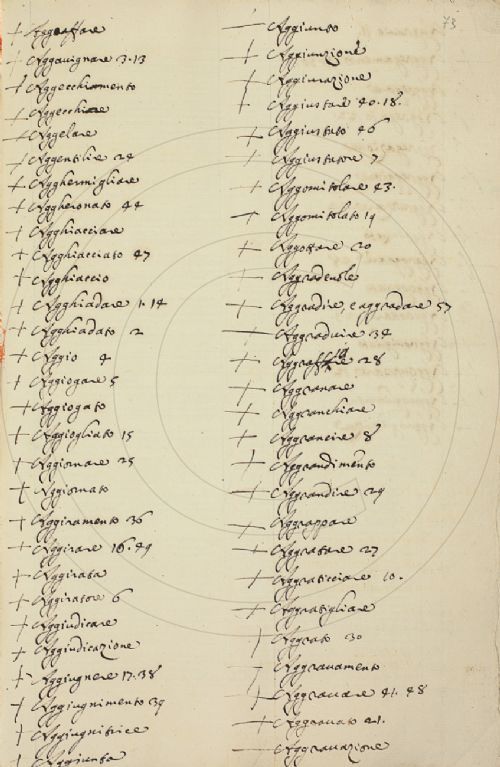 Aggraffare
Aggavignare 3.13
Aggecchimento
Aggecchire
Aggelare
Aggentilire 24
Agghermigliare
Aggheronato 44
Agghiacciare
Agghiacciato 47
Agghiaccio
Agghiadare 1.14
Agghiadato 2
Aggio 4
Aggiogare 5
Aggiogato
Aggiogliato 15
Aggiornare 25
Aggiornato
Aggiramento 36
Aggirare 16.49
Aggirata
Aggiratore 6
Aggiudicare
Aggiudicazione
Aggiugnere 17.38
Aggiugnimento 39
Aggiugnitrice
Aggiunta
73
Aggiunto
Aggiunzione
Aggiurazione
Aggiustare 40.18
Aggiustato 46
Aggiustatore 7
Aggomitolare 43.
Aggomitolato 19
Aggottare 20
Aggradevole
Aggradire, e aggradare 57
Aggraduire 34
28
Aggranare
Aggranchiare
Aggrancire 8
Aggrandimento
Aggrandire 29
Aggrappare
Aggratare 27
Aggraticciare 10.
Aggratigliare
Aggrato 30
Aggravamento
Aggravare 41.48
Aggravato 21.
Aggravazione